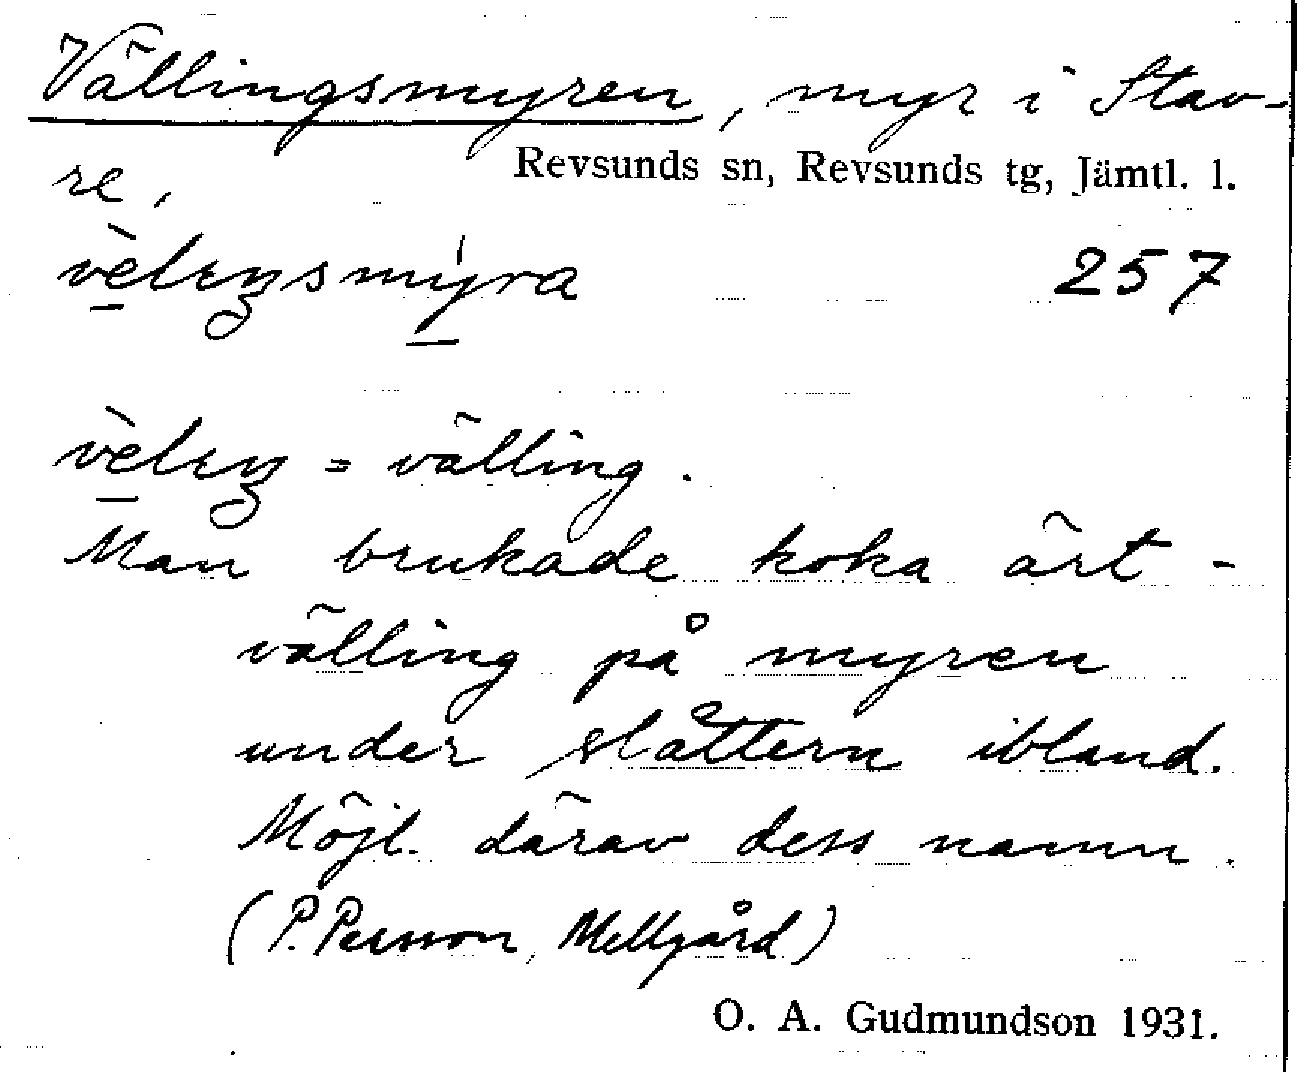 Vällingsmyren, myr i Stav-
re,
Revsunds sn, Revsunds tg, Jämtl. l.
vèlıŋsmy̍ra
257
vèlıŋ = välling.
Man brukade koka ärt-
välling på myren
under slåttern ibland.
Möjl. därav dess namn.
(P. Persson, Mellgård)
O. A. Gudmundson 1931.